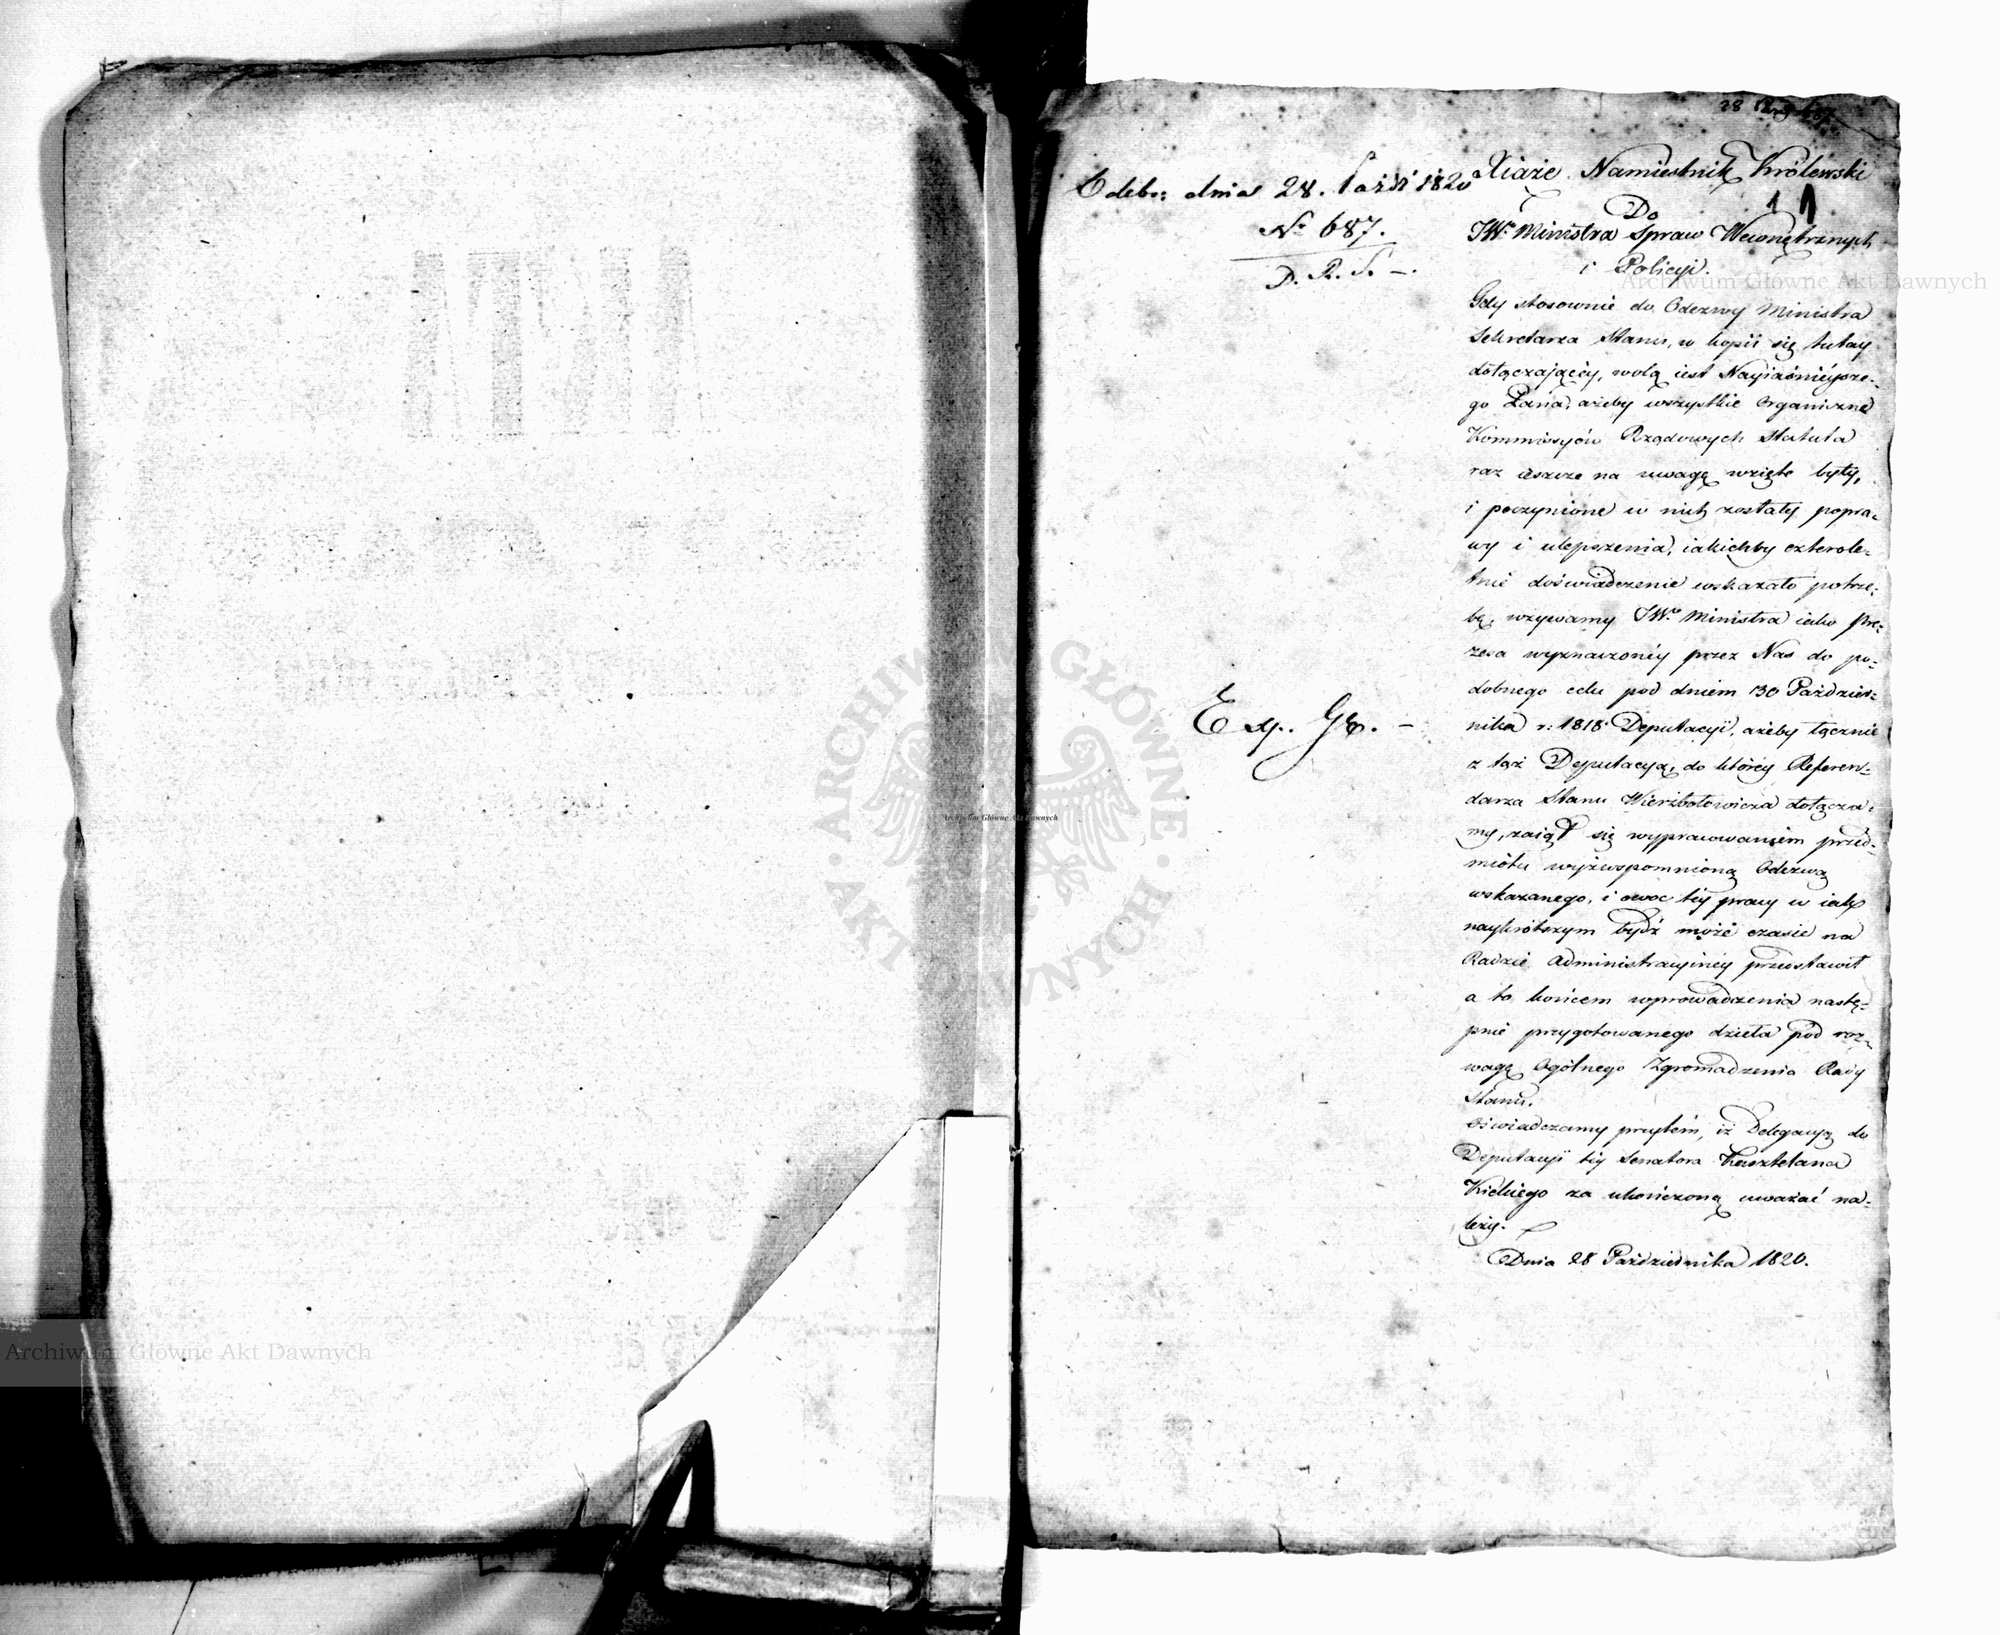 Odebr: dnia 28. Paźdź 1820
No 687.
D. R. S. –.
Ex. Gł. –
Xiąże Namiestnik Królewski
Do
JWo Ministra Spraw Wewnętrznych
i Policyi.
Gdy stosownie do Odezwy Ministra
Sekretarza Stanu, w kopii się tutay
dołączaiącéy, wolą iest Nayiaśniéysze-
go Pana, ażeby wszystkie Organiczne
Kommissyów Rządowych Statuta
raz ieszcze na uwagę wzięte były,
i poczynione w nich zostały popra-
wy i ulepszenia, iakichby czterole-
tnie doświadczenie wskazało potrze-
bę, wzywamy JWo Ministra iako Pre-
zesa wyznaczonéy przez Nas do po-
dobnego celu pod dniem 30 Paździer-
nika r: 1818 Deputacyi, ażeby łącznie
z tąż Deputacyą, do któréy Referen-
darza Stanu Wierzbołowicza dołącza-
my, zaiął się wypracowaniem przed-
miotu wyżwspomnioną Odezwą
wskazanego, i owoc téy pracy w iak
naykrótszym bydź może czasie na
Radzie Administracyinéy przedstawił
a to końcem wprowadzenia nastę-
pnie przygotowanego dzieła pod roz-
wagę Ogólnego Zgromadzenia Rady
Stanu.
Oświadczamy przytém, iż Delegacyą do
Deputacyi téy Senatora Kasztelana
Kickiego za ukończoną uważać na-
leży.
Dnia 28 Października 1820.
Archiwum Główne Akt Dawnych
Archiwum Główne Akt Dawnych
Archiwum Główne Akt Dawnych
ARCHIWUM GŁÓWNE · AKT DAWNYCH ·